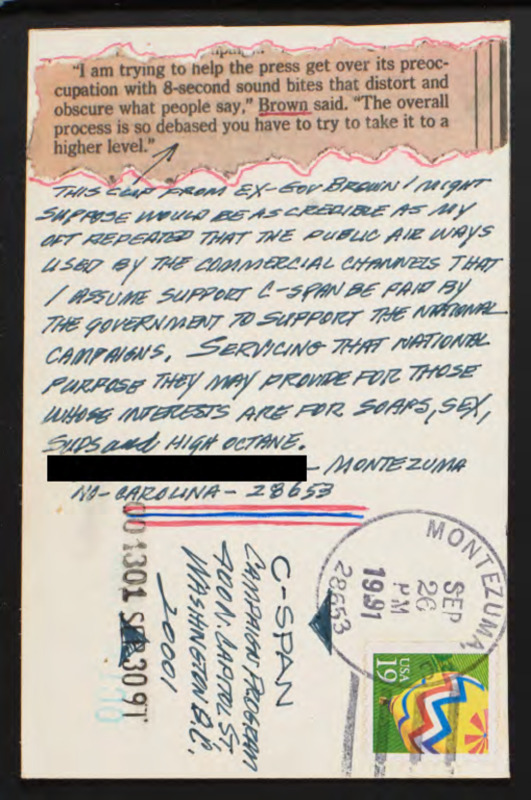 "I am trying to help the press get over its preoc-
cupation with 8-second sound bites that distort and
obscure what people say," Brown said. "The overall
process is so debased you have to try to take it to a
higher level."
THIS CLIP FROM EX-GOV BROWN I MIGHT
SUPPOSE WOULD BE AS CREDIBLE AS MY
OFT REPEATED THAT THE PUBLIC AIR WAYS
USED BY THE COMMERCIAL CHANNELS THAT
I ASSUME SUPPORT C-SPAN BE PAID BY
THE GOVERNMENT TO SUPPORT THE NATIONAL
CAMPAIGNS. SERVICING THAT NATIONAL
PURPOSE THEY MAY PROVIDE FOR THOSE
WHOSE INTERESTS ARE FOR SOAPS, SEX,
SUDS and HIGH OCTANE.
- MONTEZUMA
NO-CAROLINA - 28653
C-SPAN
CAMPAIGNS PROGRAM
400 N. CAPITOL ST,
WASHINGTON D.C.
20001
001301 SEP3091
MONTEZUMA
SEP
26
PM
1991
28653
USA
19